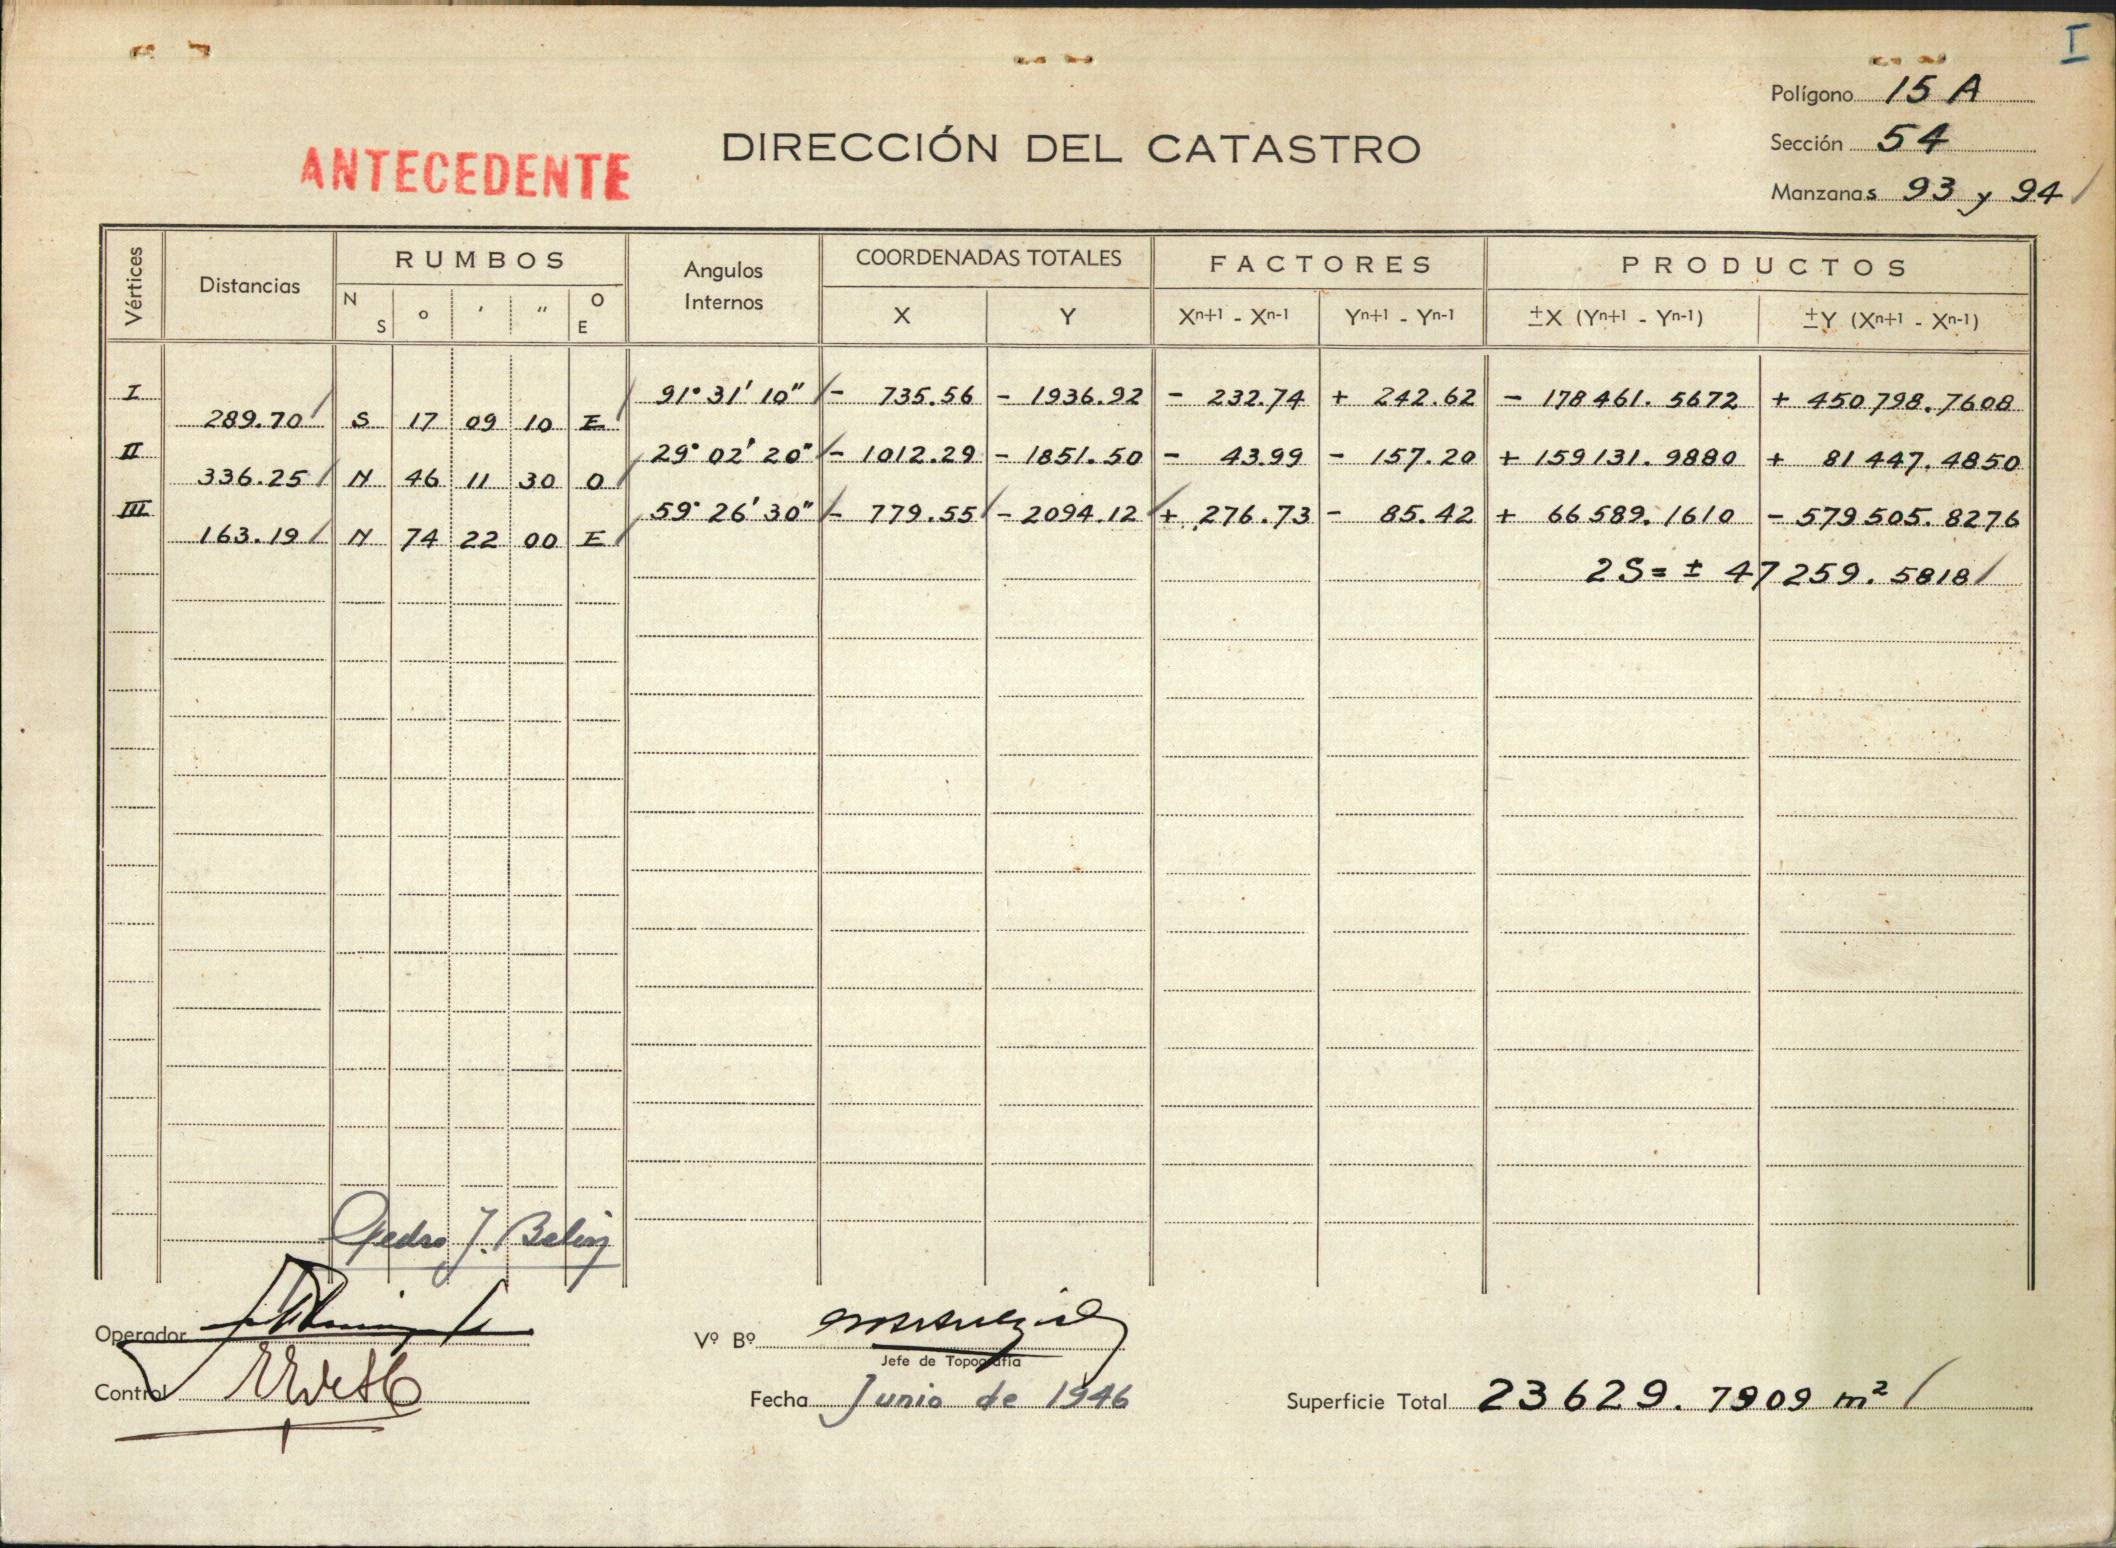 I
Polígono 15 A
Sección 54
Manzanas 93 y 94
ANTECEDENTE
DIRECCIÓN DEL CATASTRO
Vértices Distancias RUMBOS Angulos Internos COORDENADAS TOTALES FACTORES PRODUCTOS
N S ° ' " O E X Y Xn+1 - Xn-1 Yn+1 - Yn-1 ±X (Yn+1 - Yn-1) ±Y (Xn+1 - Xn-1)
I 91° 31' 10" - 735.56 - 1936.92 - 232.74 + 242.62 - 178461.5672 + 450798.7608
289.70 S 17 09 10 E
II 29° 02' 20" - 1012.29 - 1851.50 - 43.99 - 157.20 + 159131.9880 + 81447.4850
336.25 N 46 11 30 O
III 59° 26' 30" - 779.55 - 2094.12 + 276.73 - 85.42 + 66589.1610 - 579505.8276
163.19 N 74 22 00 E
2S = ± 47259.5818
Pedro J.
Operador
Vº Bº
Jefe de Topografía
Control
Fecha Junio de 1946
Superficie Total 23629.7909 m²